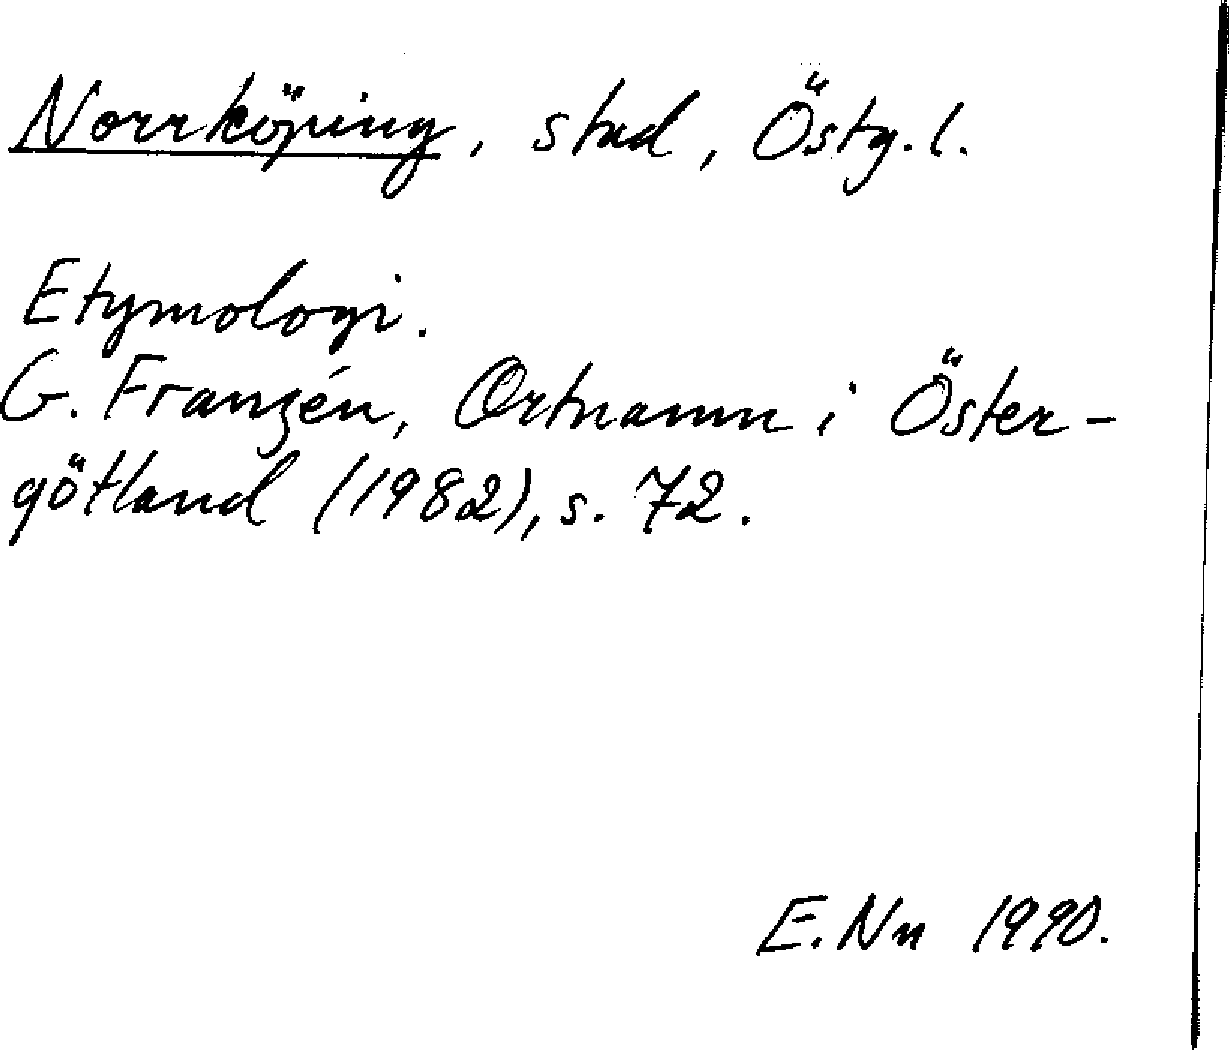 Norrköping, stad, Östg. l.
Etymologi.
G. Franzén, Ortnamn i Öster-
götland (1982), s. 72.
E. Nn 1990.